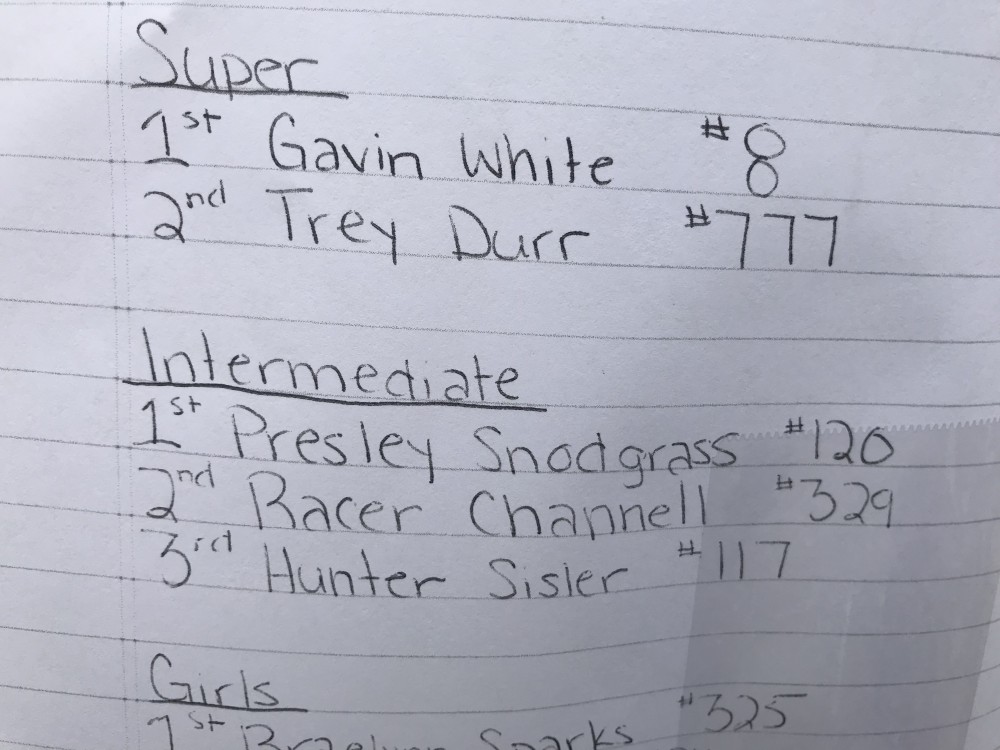 Super
1st Gavin White #8
2nd Trey Durr #777
Intermediate
1st Presley Snodgrass #120
2nd Racer Channell #329
3rd Hunter Sisler #117
Girls
1st Sparks #325